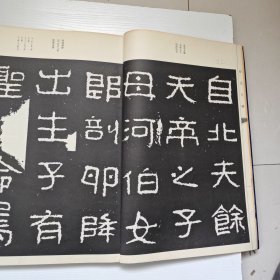 自北夫餘
天帝之子
母河伯女
郎剖卵降
出生子有
聖
命駕